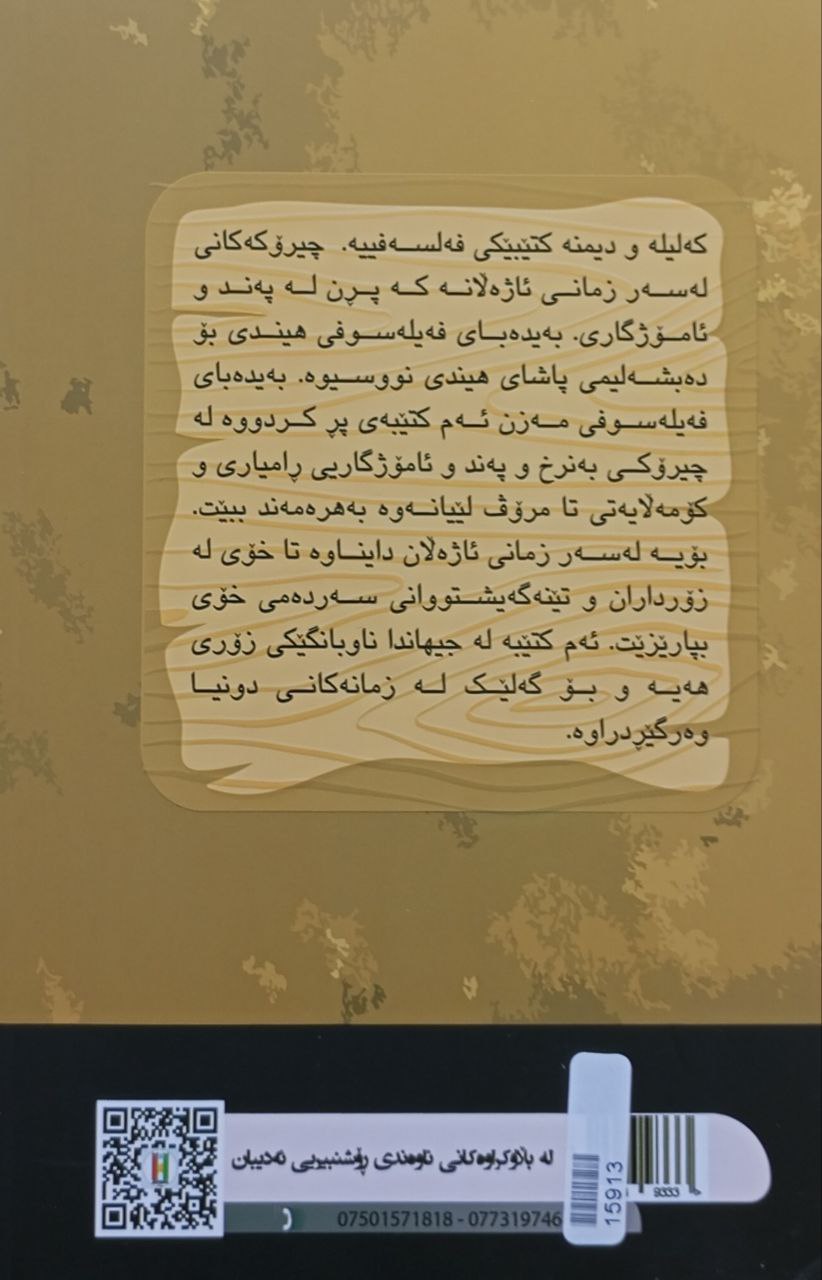 کەلیلە و دیمنە کتێبێکی فەلسەفییە. چیرۆکەکانی
لەسەر زمانی ئاژەڵانە کە پڕن لە پەند و
ئامۆژگاری. بەیدەبای فەیلەسوفی هیندی بۆ
دەبشەلیمی پاشای هیندی نووسیوە. بەیدەبای
فەیلەسوفی مەزن ئەم کتێبەی پڕ کردووە لە
چیرۆکی بەنرخ و پەند و ئامۆژگاریی ڕامیاری و
کۆمەڵایەتی تا مرۆڤ لێیانەوە بەهرەمەند ببێت.
بۆیە لەسەر زمانی ئاژەڵان دایناوە تا خۆی لە
زۆرداران و تێنەگەیشتووانی سەردەمی خۆی
بپارێزێت. ئەم کتێبە لە جیهاندا ناوبانگێکی زۆری
هەیە و بۆ گەلێک لە زمانەکانی دونیا
وەرگێڕدراوە.
لە بڵاوکراوەکانی ناوەندی ڕۆشنبیریی ئەدیبان
07501571818 - 077319746
15913
9333